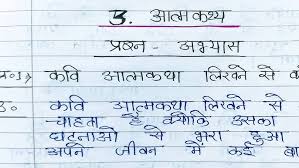 3. आत्मकथ्य
प्रश्न - अभ्यास
प्र०1) कवि आत्मकथा लिखने से
उ० कवि आत्मकथा लिखने से
चाहता है क्योंकि उसका
घटनाओं से भरा हुआ
अपने जीवन में कई